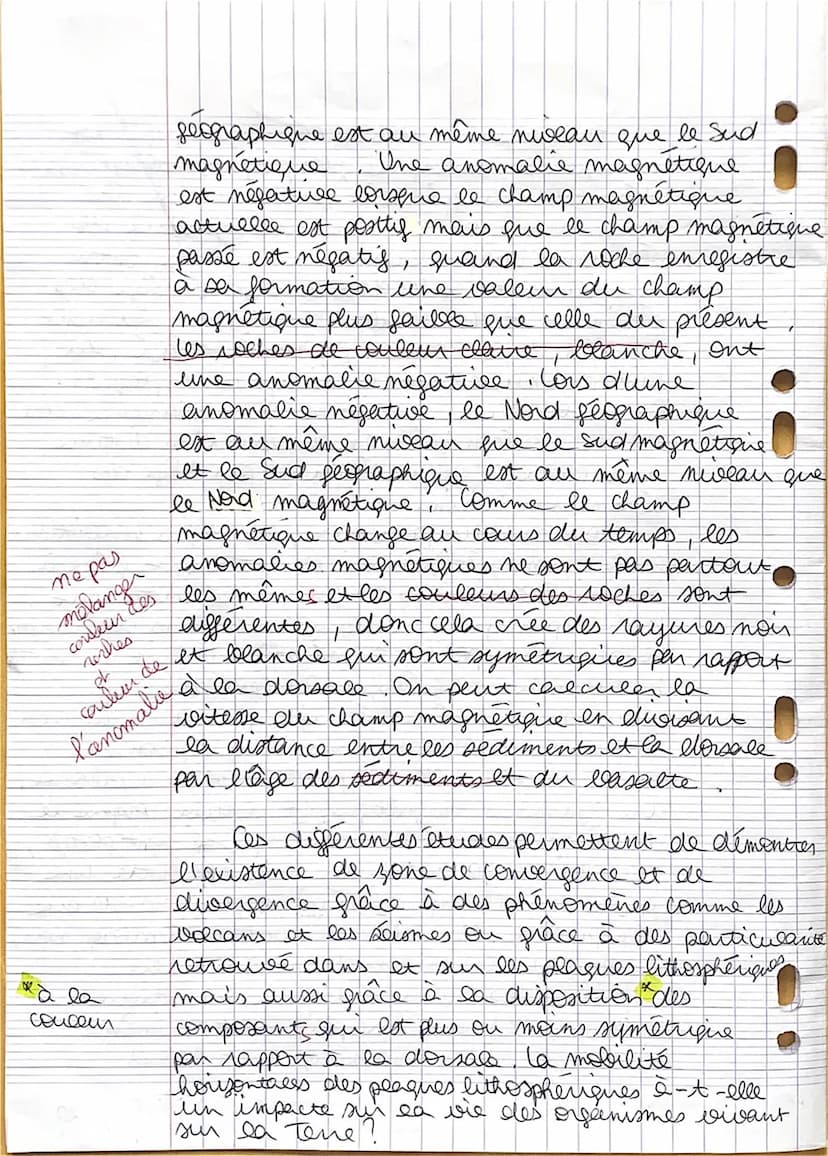 géographique est au même niveau que le Sud
magnétique. Une anomalie magnétique
est négative lorsque le champ magnétique
actuelle est positif mais que le champ magnétique
passé est négatif, quand la roche enregistre
à sa formation une valeur du champ
magnétique plus faible que celle du présent.
Les roches de couleur claire, blanche, ont
une anomalie négative. Lors d'une
anomalie négative, le Nord géographique
est au même niveau que le Sud magnétique
et le Sud géographique est au même niveau que
le Nord magnétique. Comme le champ
magnétique change au cours du temps, les
anomalies magnétiques ne sont pas partout
les mêmes et les couleurs des roches sont
différentes, donc cela crée des rayures noir
et blanche qui sont symétriques par rapport
à la dorsale. On peut calculer la
vitesse du champ magnétique en divisant
la distance entre les sédiments et la dorsale
par l'âge des sédiments et du basalte.
ne pas
mélanger
couleur des
roches
et
couleur de
l'anomalie
Ces différentes études permettent de démontrer
l'existence de zone de convergence et de
divergence grâce à des phénomènes comme les
volcans et les séismes ou grâce à des particularité
retrouvé dans et sur les plaques lithosphériques
mais aussi grâce à la disposition * des
composants qui est plus ou moins symétrique
par rapport à la dorsale. La mobilité
horizontales des plaques lithosphériques à-t-elle
un impacte sur la vie des organismes vivant
sur la Terre ?
* à la
couleur